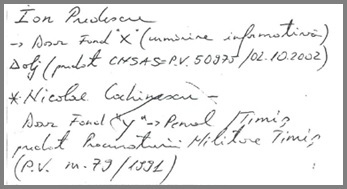 Ion Predescu
→ Dosar Fond "X" (urmărire informativă)
Dolj (predat CNSAS = P.V. 50975/02.10.2002)
* Nicolae Cochinescu -
Dosar Fond "Y" → Penal / Timiș
predat Procuraturii Militare Timiș
(P.V. nr. 79/1991)